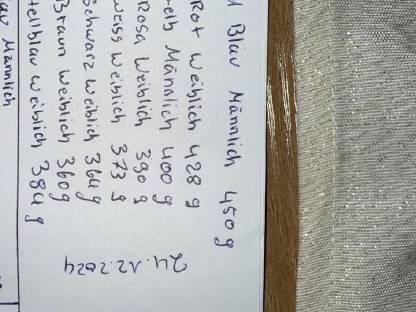 24.12.2024
Blau Männlich 450g
Rot Weiblich 428 g
elb Männlich 400g
Rosa Weiblich 390 g
Weiss Weiblich 373 g
Schwarz Weiblich 364g
Braun Weiblich 360g
Hellblau Weiblich 384 g
Männlich